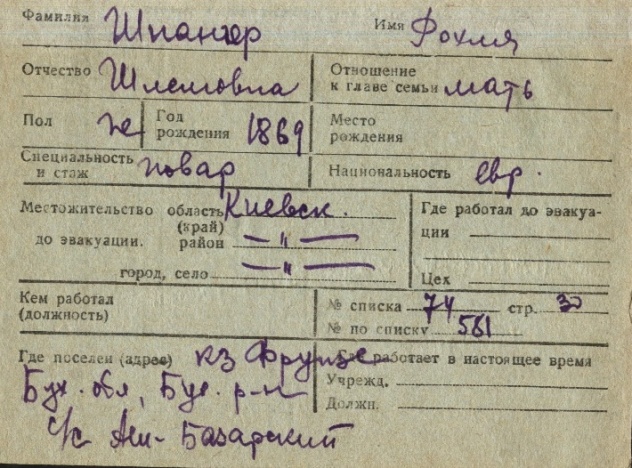 Фамилия Шпангер Имя Рохля
Отчество Шлемовна Отношение к главе семьи мать
Пол ж Год рождения 1869 Место рождения
Специальность и стаж повар Национальность евр.
Местожительство до эвакуации. область (край) Киевск. Где работал до эвакуа-
район —〃— ции
город, село —〃— Цех
Кем работал № списка 74 стр. 30
(должность) № по списку 561
Где поселен (адрес) кз Фрунзе Где работает в настоящее время
Бух. обл, Бух. р-н Учрежд.
Должн.
с/с Базарский